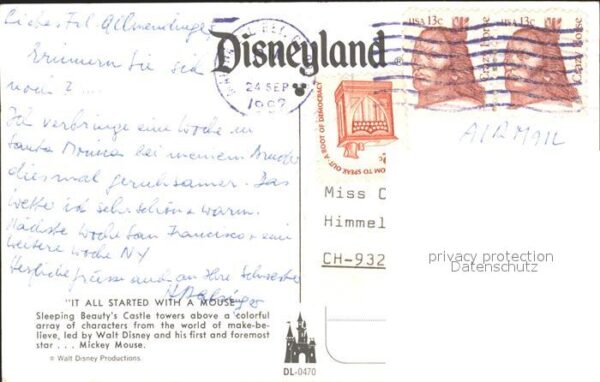 Liebes Frl. Allmendinger,
Erinnern Sie sich
noch? ....
Ich verbringe eine Woche in
Santa Monica bei meinem Bruder
diesmal geruhsamer. Das
Wetter ist sehr schön & warm.
Nächste Woche San Francisco & eine
weitere Woche NY
Herzliche Grüsse auch an Ihre Schwester
"IT ALL STARTED WITH A MOUSE"
Sleeping Beauty's Castle towers above a colorful
array of characters from the world of make-be-
lieve, led by Walt Disney and his first and foremost
star . . . Mickey Mouse.
© Walt Disney Productions.
Disneyland
®
24 SEP
DL-0470
USA 13c
Crazy Horse
USA 13c
Crazy Horse
OM TO SPEAK OUT-A ROOT OF DEMOCRACY
AIRMAIL
Miss C
Himmel
CH-932
privacy protection
Datenschutz